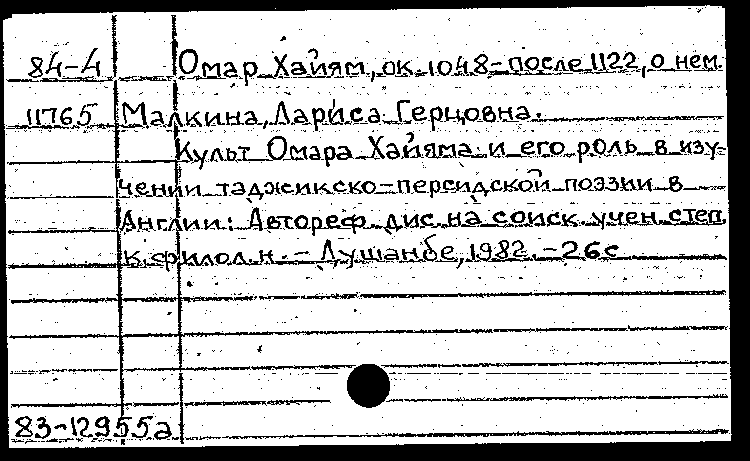 84-4 Омар Хайям, ок. 1048-после 1122, о нем.
11765 Малкина, Лариса Герцовна.
Культ Омара Хайяма и его роль в изу-
чении таджикско-персидской поэзии в
Англии: Автореф. дис. на соиск. учен. степ.
к. филол. н. - Душанбе, 1982. - 26 с
83-12955а